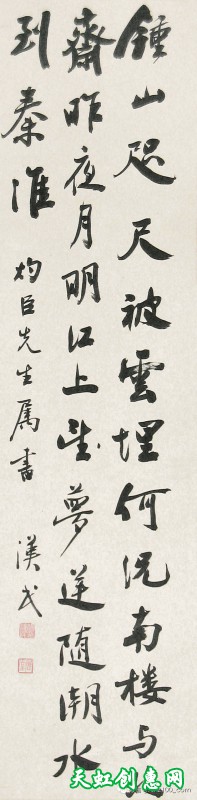 鍾山咫尺被雲埋何況南樓與北
齋昨夜月明江上望夢逆随潮水
到秦淮
灼臣先生属書
漢民
天虹创意网